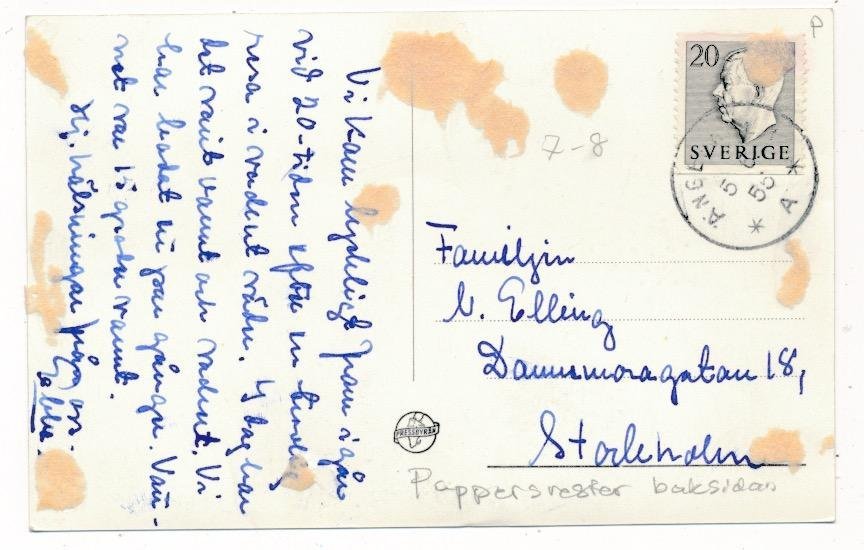 Vi kom lyckligt fram igår
vid 20-tiden efter en underbar
resa i vackert väder. I dag har
det varit varmt och vackert. Vi
har badat en par gånger. Vatt-
net var 15 grader varmt.
Hj. hälsningar från oss.
Ebbe.
7-8
P
20
SVERIGE
ÄNGE
5
55
A
Familjen
Elling
Dannemoragatan 18,
Stockholm
PRESSBYRÅN
Pappersrester baksidan